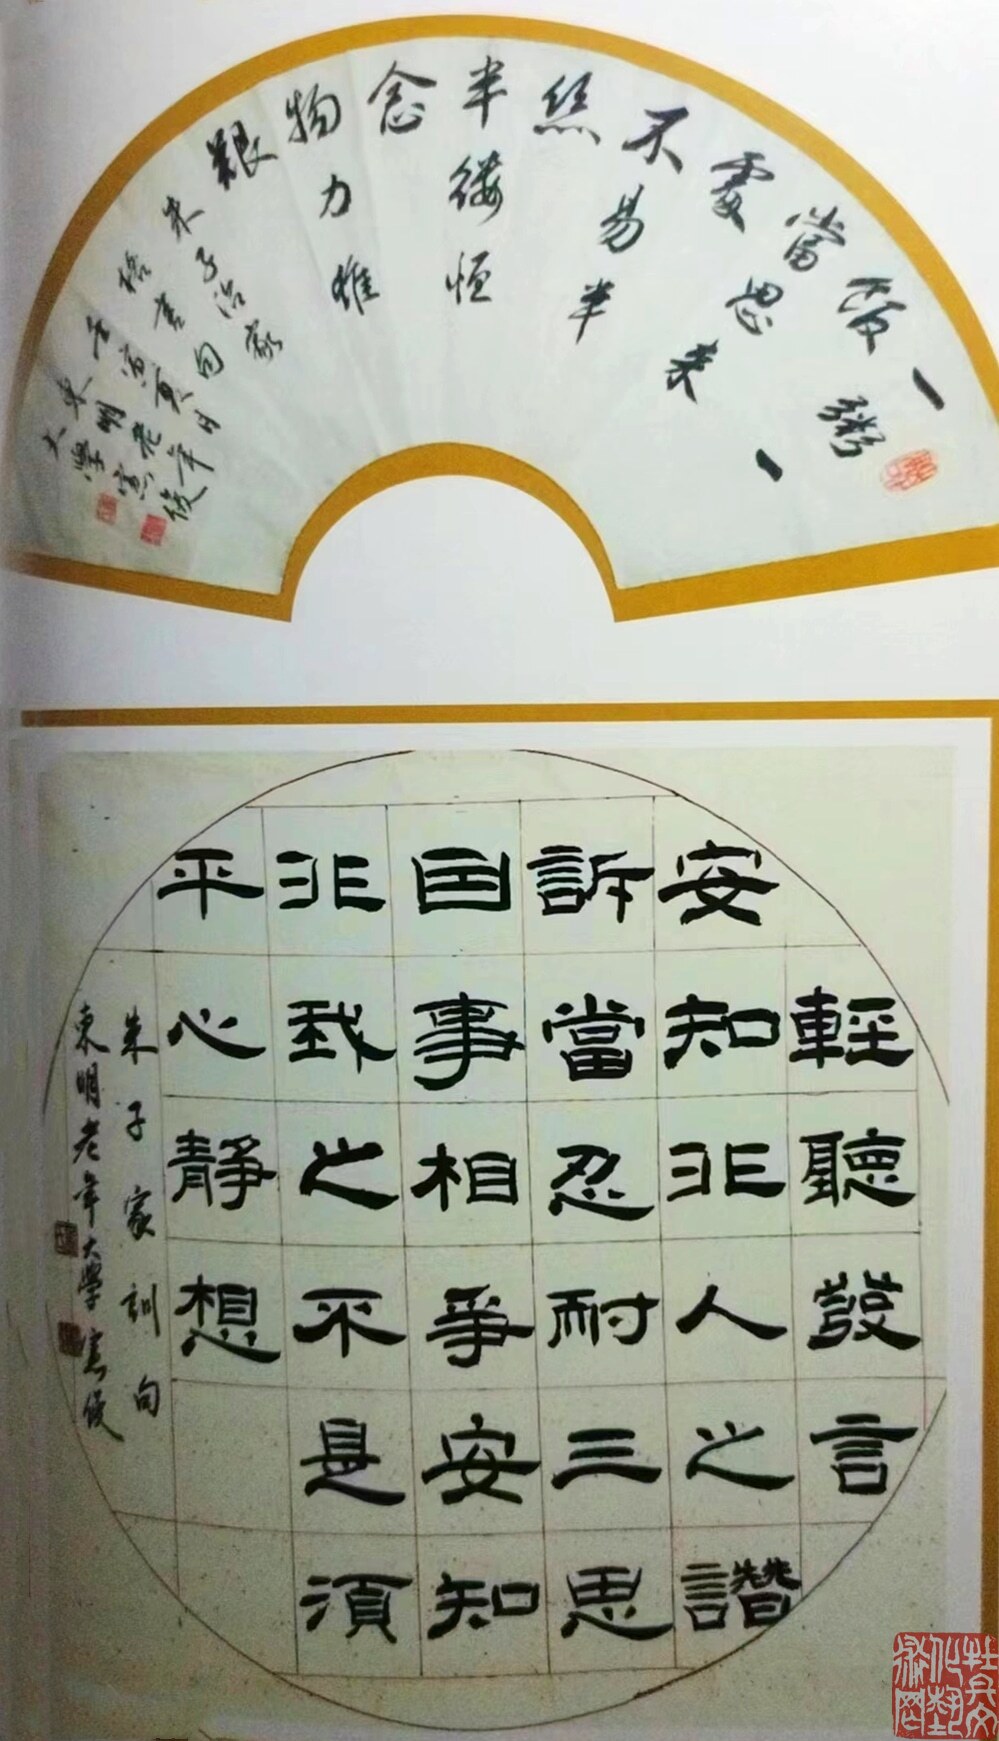 一粥一
飯
當思來
處
不易半
絲
半縷恒
念
物力維
艱
朱子治家
格言句
壬寅夏月
東明老年
大學憲俊
輕聽發言
安知非人之譖
訴當忍耐三思
因事相爭安知
非我之不是須
平心靜想
朱子家訓句
東明老年大學憲俊